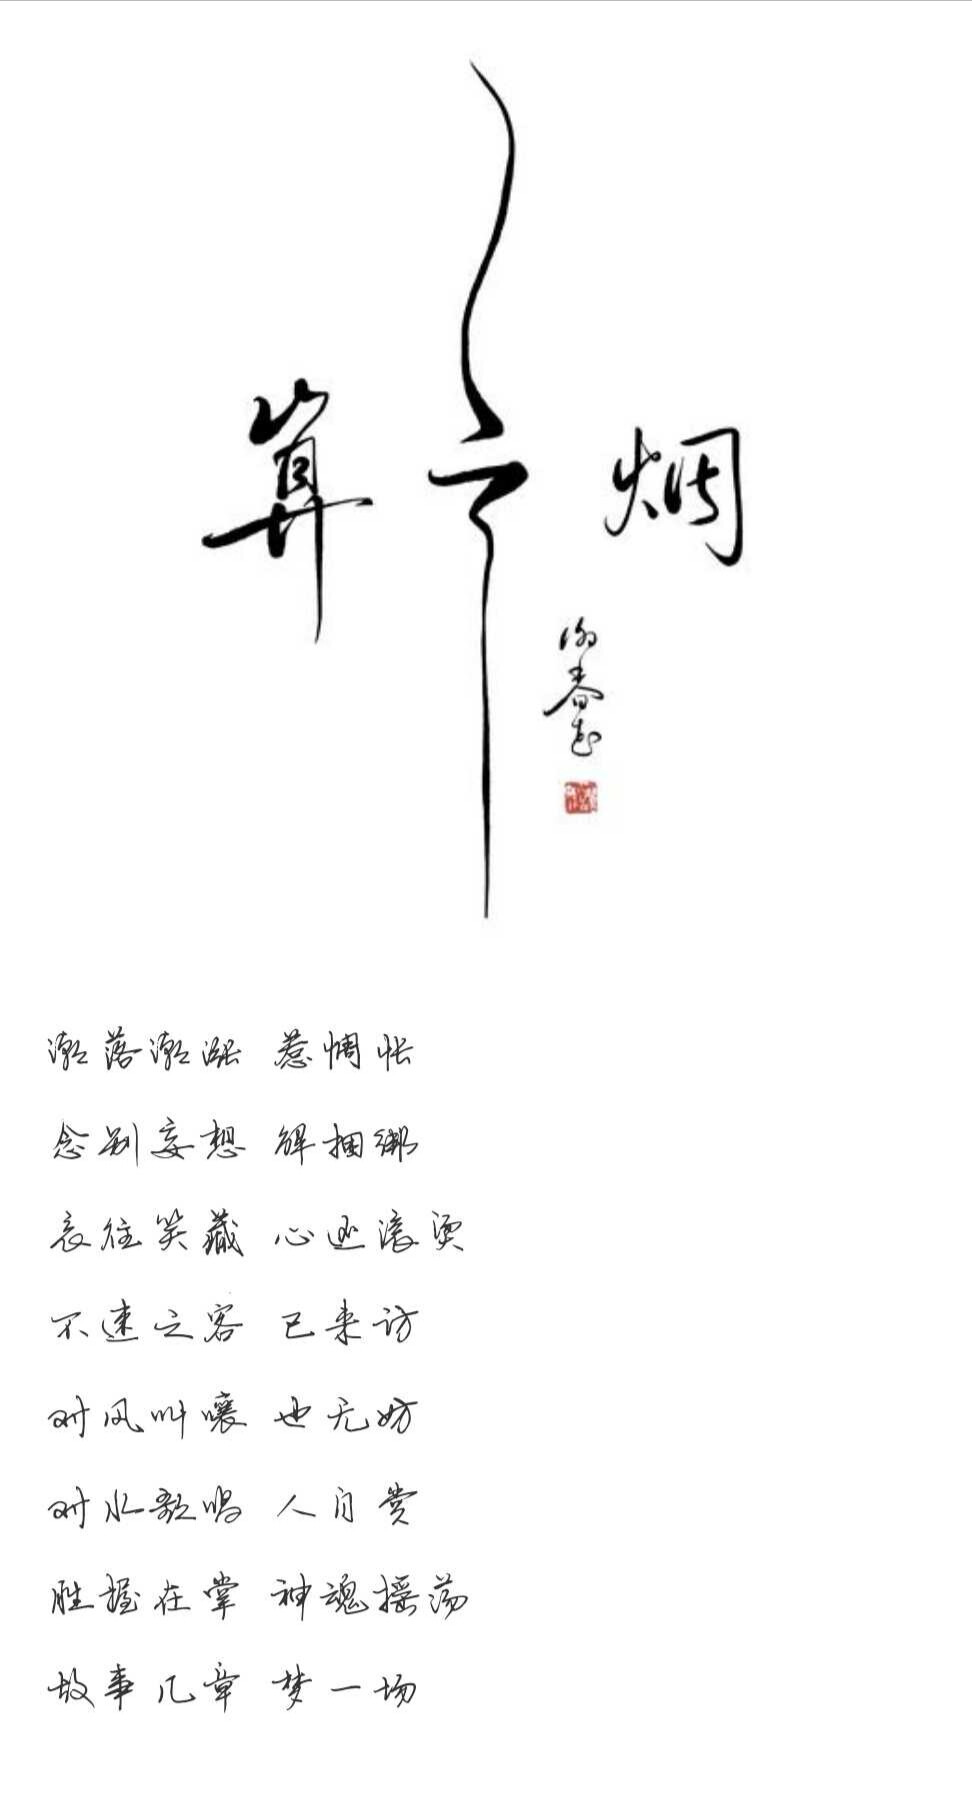 算云烟
潮落潮涨 惹惆怅
念别妄想 解捆绑
哀往笑藏 心还滚烫
不速之客 已来访
对风叫嚷 也无妨
对水歌唱 人自赏
胜握在掌 神魂摇荡
故事几章 梦一场